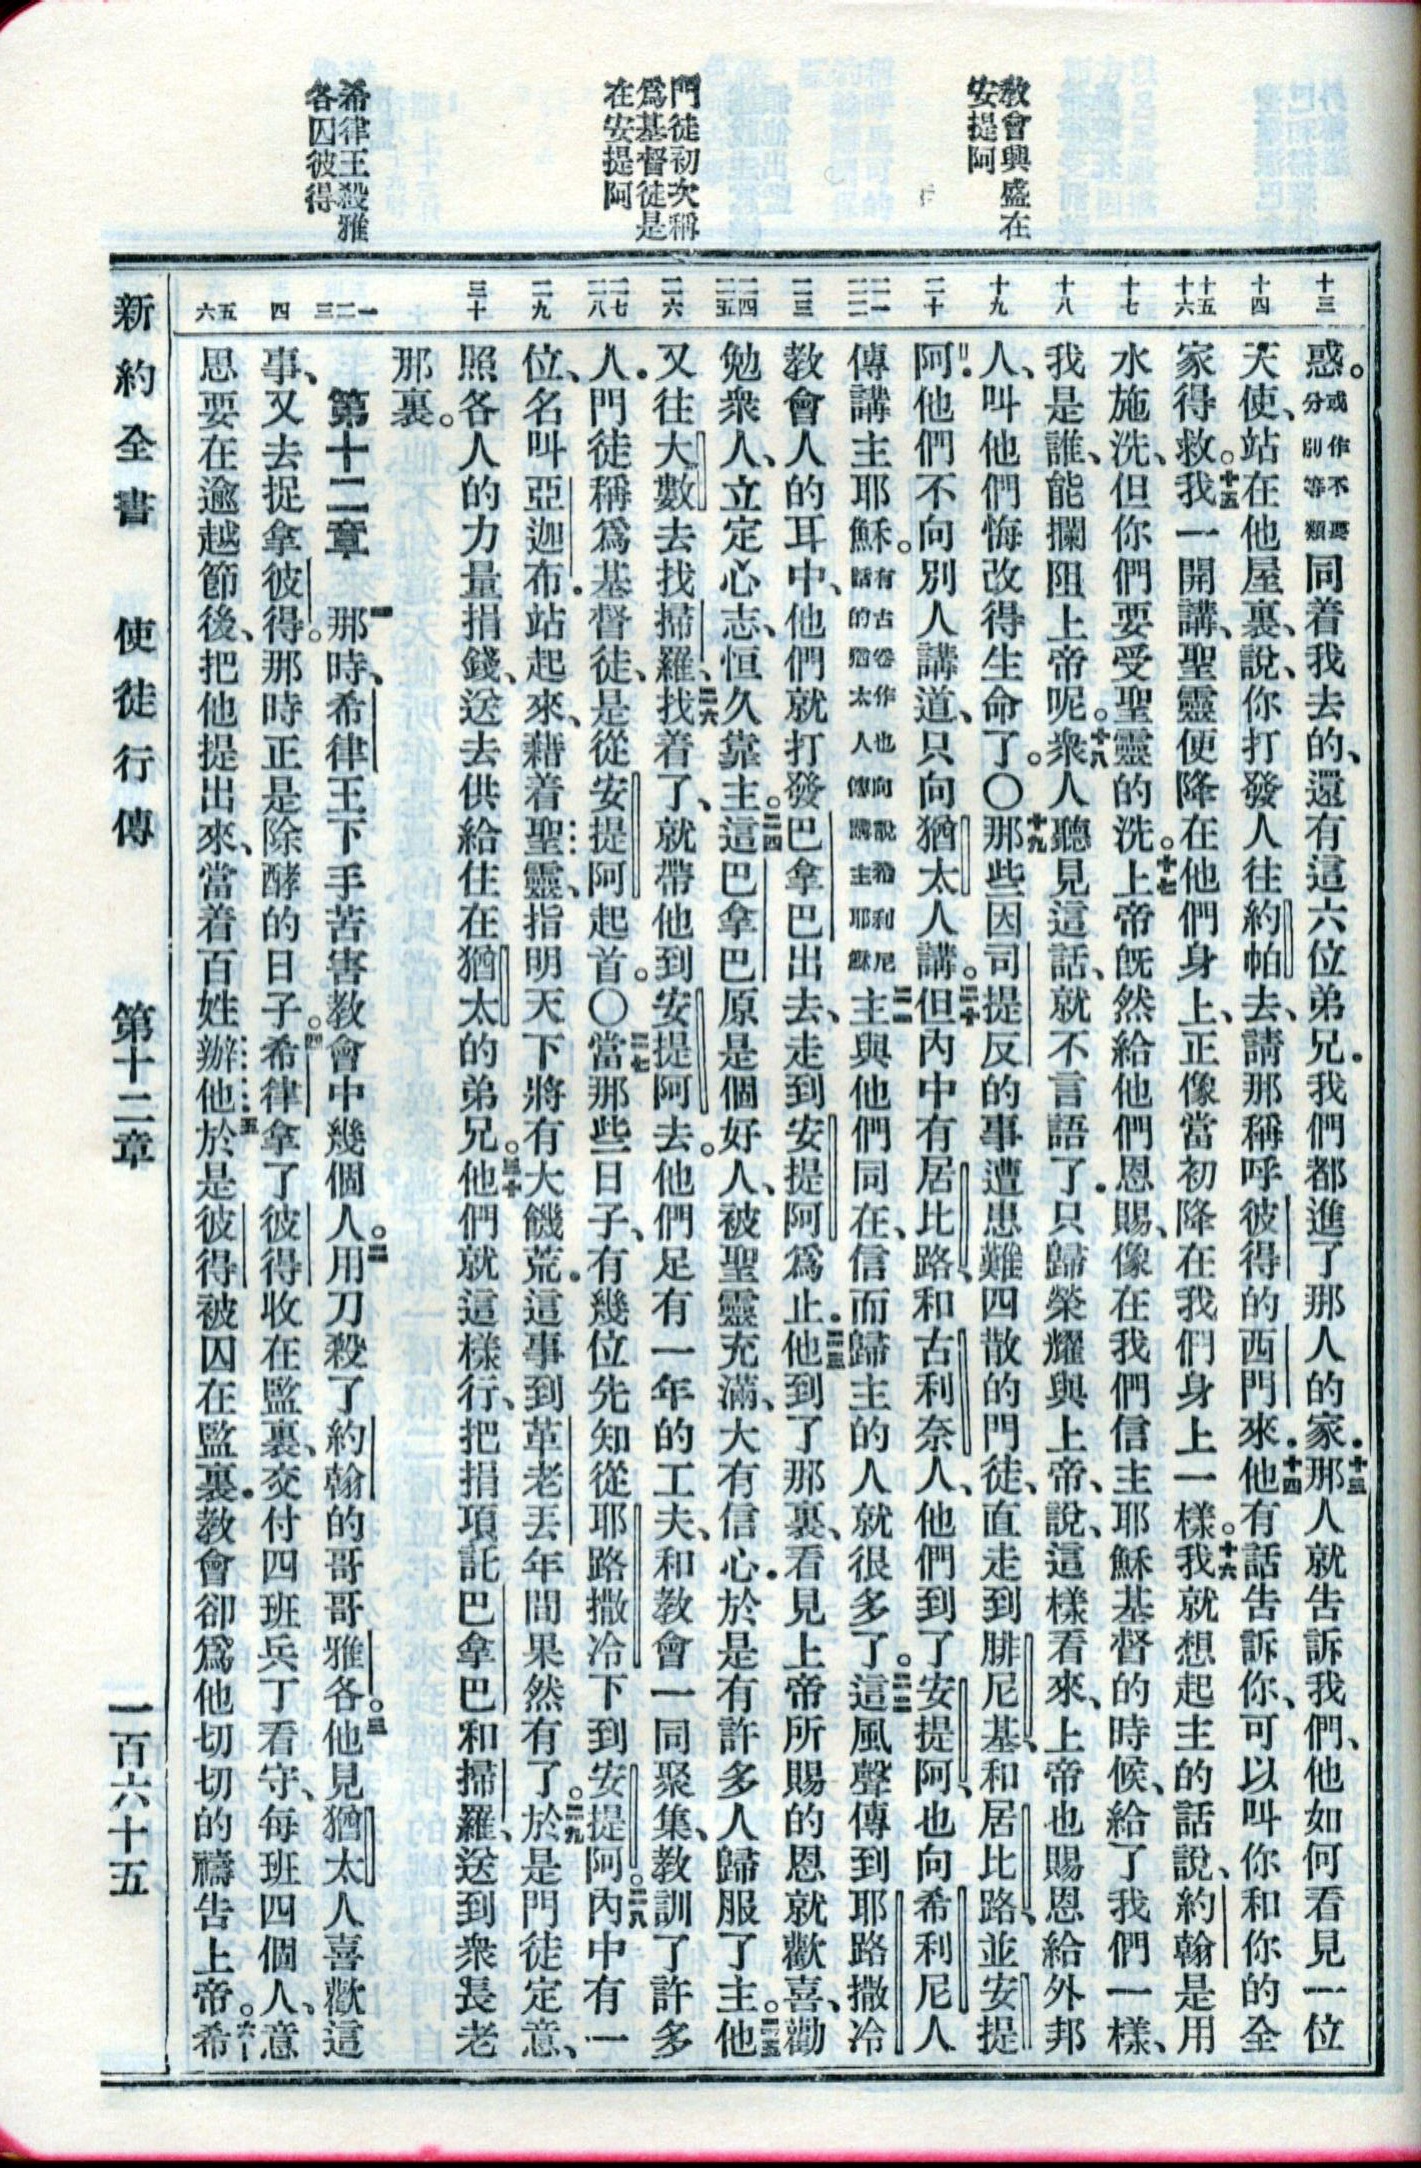 教會興盛在
安提阿
門徒初次稱
爲基督徒是
在安提阿
希律王殺雅
各囚彼得
十三
十四
十五
十六
十七
十八
十九
二十
二一
二二
二三
二四
二五
二六
二七
二八
二九
三十
一
二
三
四
五
六
惑。或作不要分別等類同着我去的、還有這六位弟兄．我們都進了那人的家．十三那人就告訴我們、他如何看見一位
天使、站在他屋裏、說、你打發人往約帕去、請那稱呼彼得的西門來．十四他有話告訴你、可以叫你和你的全
家得救。十五我一開講、聖靈便降在他們身上、正像當初降在我們身上一樣。十六我就想起主的話說、約翰是用
水施洗、但你們要受聖靈的洗。十七上帝旣然給他們恩賜、像在我們信主耶穌基督的時候、給了我們一樣、
我是誰、能攔阻上帝呢。十八衆人聽見這話、就不言語了．只歸榮耀與上帝、說、這樣看來、上帝也賜恩給外邦
人、叫他們悔改得生命了。〇十九那些因司提反的事遭患難四散的門徒、直走到腓尼基和居比路、並安提
阿．他們不向別人講道、只向猶太人講。二十但內中有居比路、和古利奈人、他們到了安提阿、也向希利尼人
傳講主耶穌。有古卷作也向說希利尼話的猶太人傳講主耶穌二一主與他們同在、信而歸主的人就很多了。二二這風聲傳到耶路撒冷
教會人的耳中、他們就打發巴拿巴出去、走到安提阿爲止．二三他到了那裏、看見上帝所賜的恩就歡喜、勸
勉衆人、立定心志、恒久靠主。二四這巴拿巴原是個好人、被聖靈充滿、大有信心．於是有許多人歸服了主。二五他
又往大數去找掃羅、二六找着了、就帶他到安提阿去。他們足有一年的工夫、和教會一同聚集、教訓了許多
人．門徒稱爲基督徒、是從安提阿起首。〇二七當那些日子、有幾位先知從耶路撒冷下到安提阿。二八內中有一
位、名叫亞迦布．站起來、藉着聖靈、指明天下將有大饑荒．這事到革老丟年間果然有了。二九於是門徒定意、
照各人的力量捐錢、送去供給住在猶太的弟兄。三十他們就這樣行、把捐項託巴拿巴和掃羅、送到衆長老
那裏。
第十二章　一那時、希律王下手苦害教會中幾個人。二用刀殺了約翰的哥哥雅各。三他見猶太人喜歡這
事、又去捉拿彼得。那時正是除酵的日子。四希律拿了彼得收在監裏、交付四班兵丁看守、每班四個人、意
思要在逾越節後、把他提出來、當着百姓辦他．五於是彼得被囚在監裏．教會卻爲他切切的禱告上帝。六希
新約全書　使徒行傳　第十二章　一百六十五